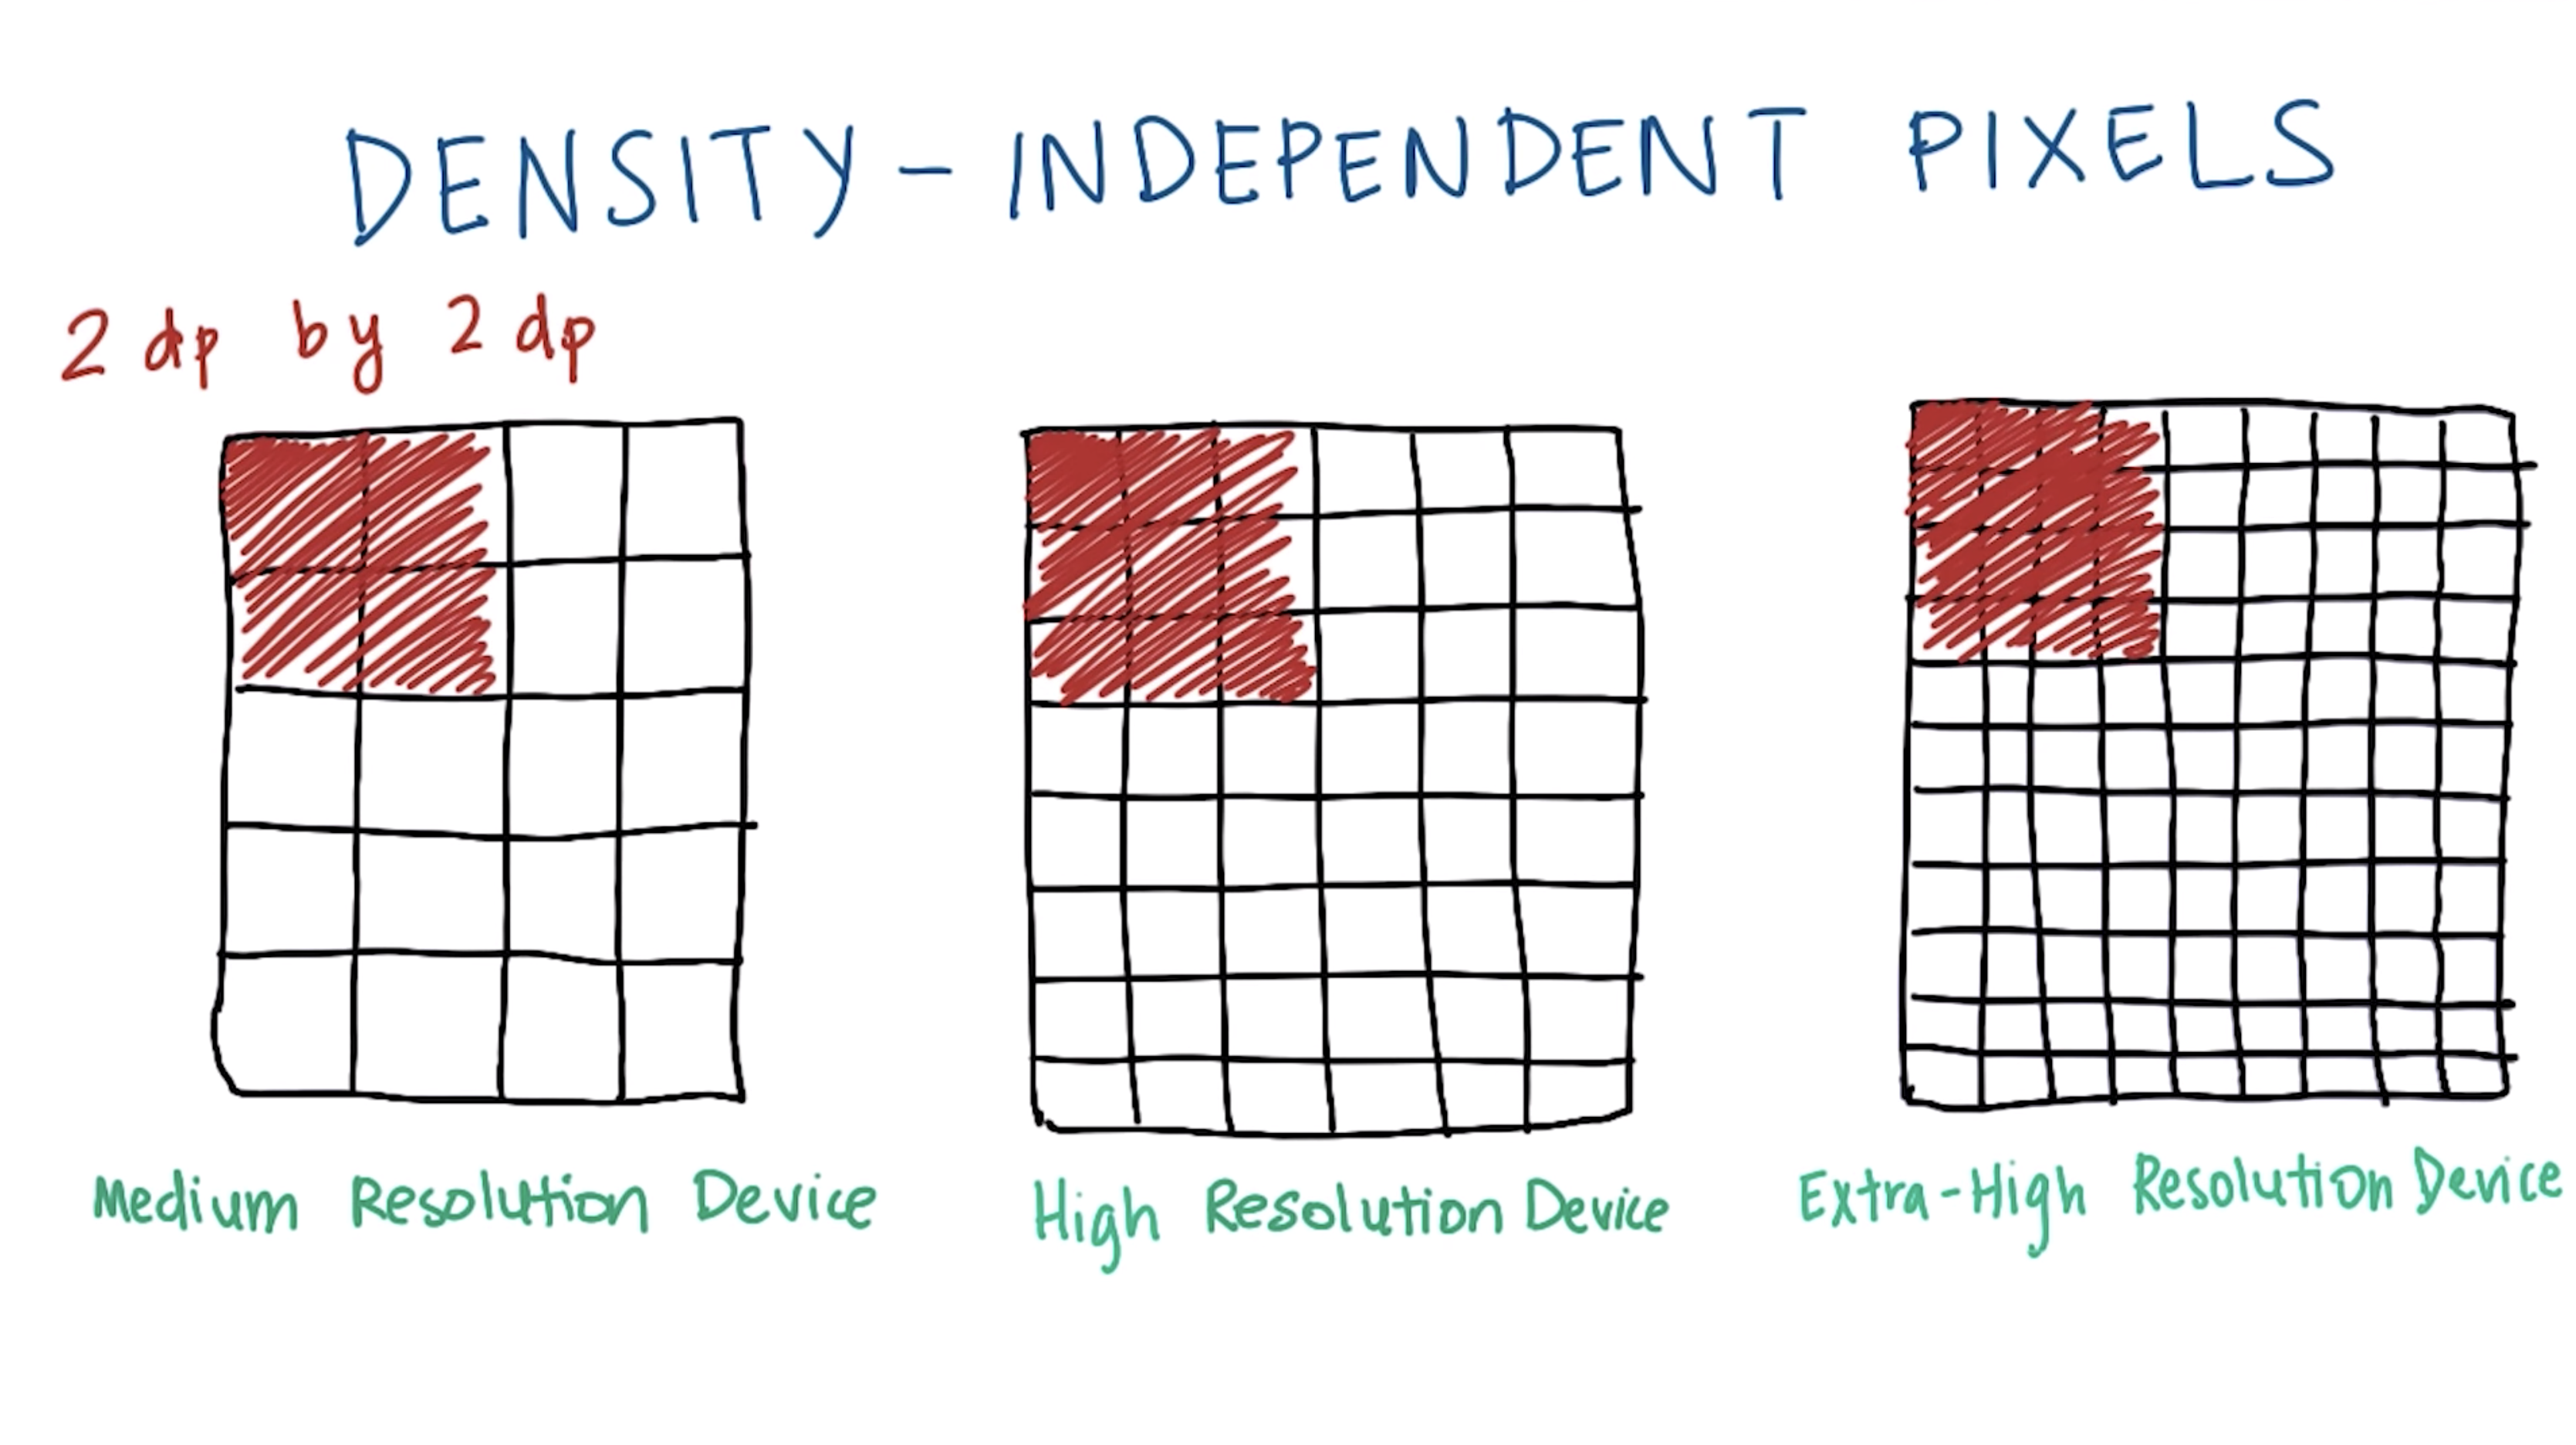 DENSITY - INDEPENDENT PIXELS
2 dp by 2 dp
Medium Resolution Device
High Resolution Device
Extra-High Resolution Device